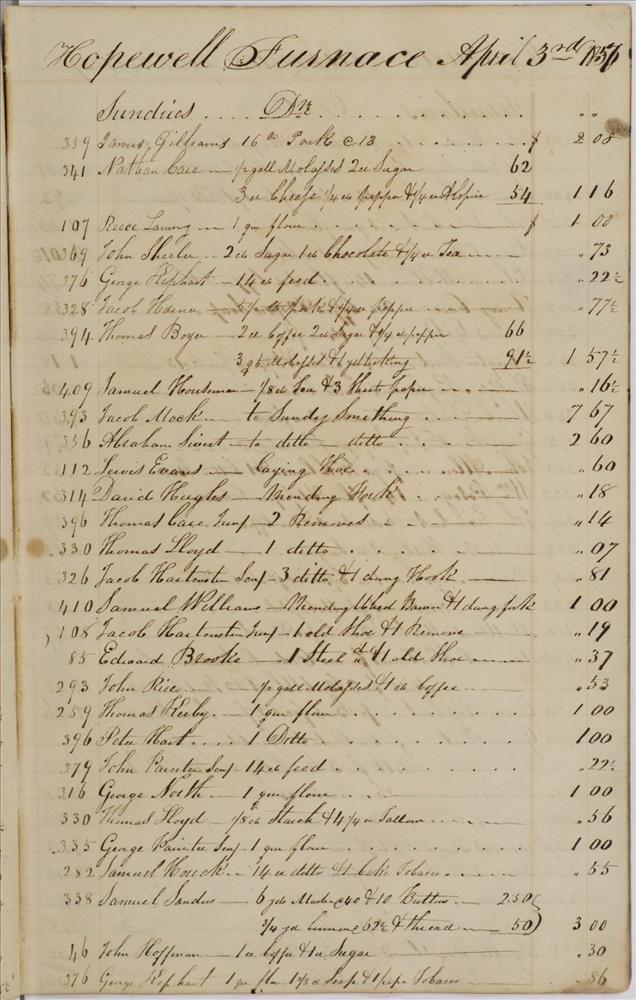 Hopewell Furnace April 3rd 1856
Sundries .... Drs
359 James Gilhams 16 lbs Pork @ 13 $ 2 08
341 Nathan Care — 1/2 gall Molasses 2 lb Sugar 62
3 lb Cheese 1/4 lb pepper & 1/4 lb Alspice 54 1 16
107 Reece Laming — 1 qur flour $ 1 00
369 John Sheeler — 2 lb Sugar 1 lb Chocolate & 1/4 lb Tea — „ 73
376 George Kephart — 14 lb feed „ 22½
328 Jacob Haner — pork & 1/4 lb pepper „ 77½
394 Thomas Boyer — 2 lb Coffee 2 lb Sugar & 1/4 lb pepper 66
3 qts Molasses & yd 91½ 1 57½
409 Samuel Housman — 1/8 lb Tea & 3 Sheets paper „ 16½
393 Jacob Mock — to Sundry Smithing 7 67
356 Abraham Sivert — to ditto — ditto 2 60
112 Lewis Evans — Laying Hoe „ 60
314 David Hughes — Mending Fork „ 18
396 Thomas Care Junr — 2 Removes „ 14
330 Thomas Lloyd — 1 ditto „ 07
326 Jacob Hartenstin Senr — 3 ditto & 1 dung Hook — „ 81
410 Samuel Williams — Mending Wheel Barrow & 1 dung fork 1 00
108 Jacob Hartenstin Junr — 1 old Shoe & 1 Remove „ 19
85 Edward Brooke — 1 Steel do & 1 old Shoe — „ 37
293 John Rice — 1/2 gall Molasses & 1 lb Coffee — „ 53
259 Thomas Kerby — 1 qur flour 1 00
396 Peter Hart .... 1 Ditto 1 00
379 John Painter Senr — 14 lb feed „ 22½
316 George North — 1 qur flour 1 00
330 Thomas Lloyd — 1/8 lb Starch & 4 1/4 lb Tallow „ 56
335 George Painter Senr — 1 qur flour 1 00
282 Samuel Houck — 14 lb ditto & 1 Cake Tobacco „ 55
338 Samuel Sanders — 6 yds Muslin @ 40 & 10 Buttons — 2.50
3/4 yd linnen @ 62½ & thread — 50 3 00
46 John Hoffman — 1 lb Coffee & 1 lb Sugar „ 30
376 George Kephart 1 qur flour 1 5/8 lb Soap & 1 paper Tobacco „ 86